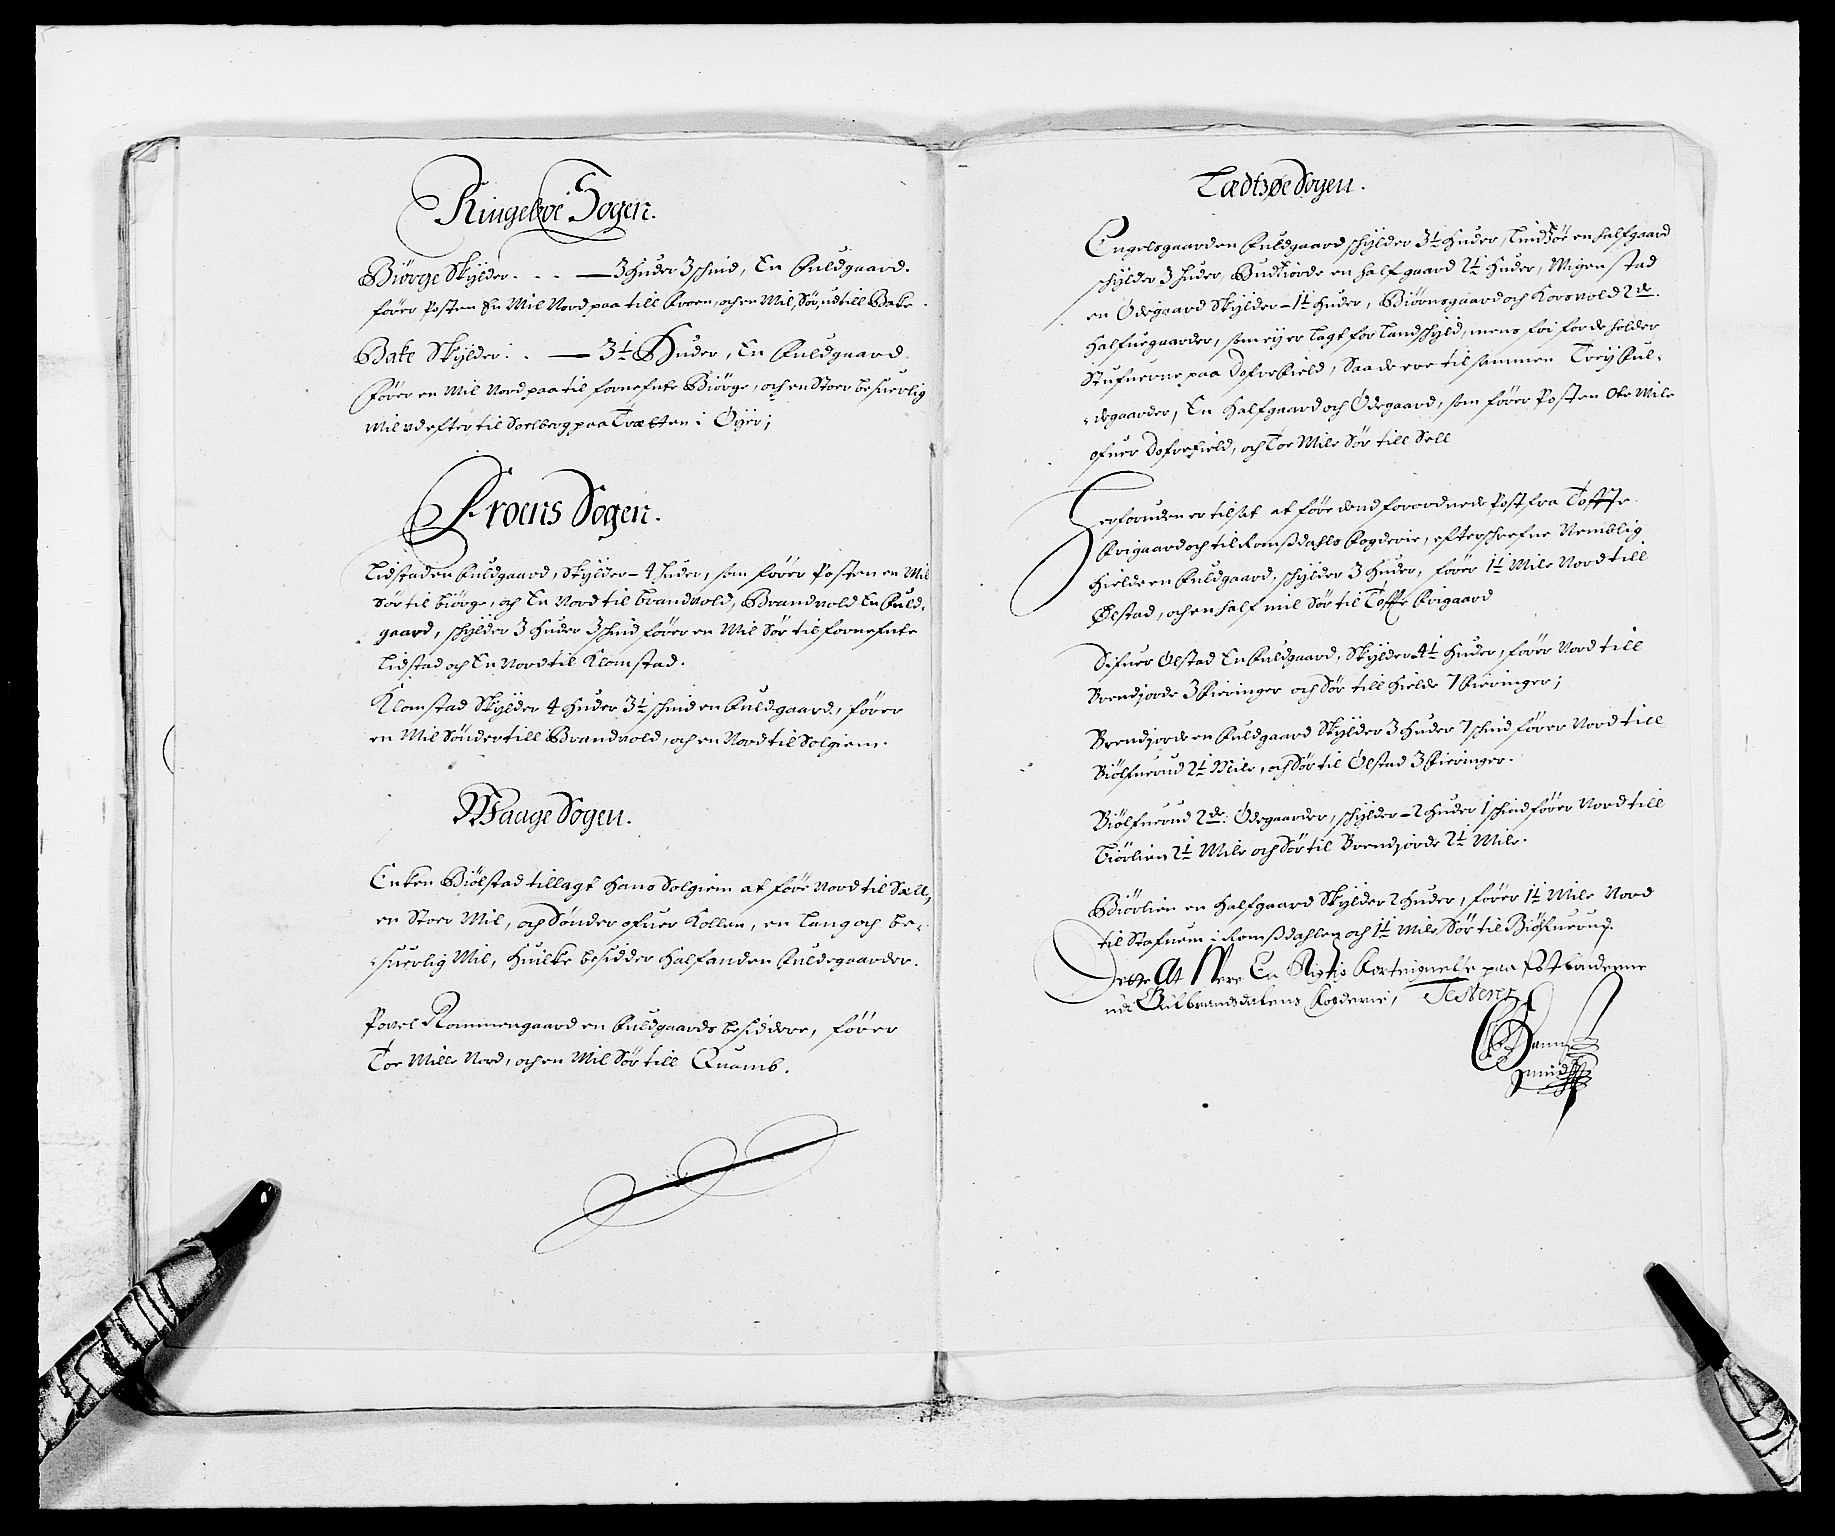 Ringeboe Sogen.
Biørge Skylder. . . . — 3 huder 3 schind, En Fuldgaard.
fører Posten En Mil Nord paa till Froen, och en Mil, Sør, ud till Bake.
Bake Skylder: . — 3½ Huder, En Fuldgaard.
Fører en Mil Nord paa til fornefnte Biørge, och en Stoer besuerlig
Mil vdefter til Soelberg paa Trætten i Øyer;
Froens Sogen.
Lidstad en Fuldgaard, Skylder – 4 Huder, som fører Posten en Mil
Sør til biørge, och En Nord til brandvold, Brandvold En Fuld-
gaard, schylder 3 huder 3 schind fører en Mil Sør til fornefnte
Lidstad och En Nord til Klomstad.
Klomstad Skylder 4 huder 3½ schind en Fuldgaard, fører
en Mil Sønder till Brandvold, och en Nord til Solgiem.
Waage Sogen.
Enken Biølstad tillagt hans Solgiem at føre Nord til Sell,
en Stoer Mil, och Sønder ofuer Kollen, en Lang och be-
suerlig Mil, huilke besidder halfanden Fuldegaarder.
Povel Rommengaard en Fuldgaards besiddere, fører
Toe Mille Nord, och en Mil Sør till Quamb.
Lædtzøe Sogen.
Engelsgaard en Fuldgaard schylder 3½ huder, Lindsøe en halfgaard
schylder 3 huder, Budtiorde en halfgaard 2½ huder, Migenstad
en Ødegaard Skylder – 1½ huder, Biørnsgaard och Korsvold 2de.
halfuegaarder, som ey er lagt for Landschyld, mens fri for de holder
Stufuerne paa Dofrefield, Saa de ere tilsammen Trey Ful-
degaarder, En halfgaard och Ødegaard, som fører Posten Ote Mile
ofuer Dofrefield, och Toe Mile Sør till Sell
Herforuden er tilsat at føre dend forordnede Post fra Tofte
Frigaard och til Romsdahls Fogderie, efterschrefne Nemblig
Hielde en Fuldgaard, schylder 3 huder, fører 1½ Mile Nord till
Ølstad, och en half mil Sør til Tofte Frigaard
Sifuer Ølstad En Fuldgaard, Skylder 4½ huder, fører Nord till
Brendjorde 3 Fieringer och Sør till Hielde 7 Fieringer;
Brendjorde en Fuldgaard Skylder 3 huder 7 schind fører Nord till
Biølfuerud 2½ Mile, och Sør til Ølstad 3 Fieringer.
Biølfuerud 2de: Ødegaarder, schylder – 2 huder 1 schind fører Nord till
Biørlien 2½ Mile och Sør til Brendjorde 2½ Mile.
Biørlien en halfgaard Skylder 2 huder, fører 1½ Mile Nord
til Stafuem i Romsdahlen och 1½ Mile Sør til Biølfuerud.
Dette At Were En Rigtig Forteignelse paa Postbønderne
udi Gulbrandsdalens Fogderie, Testerer